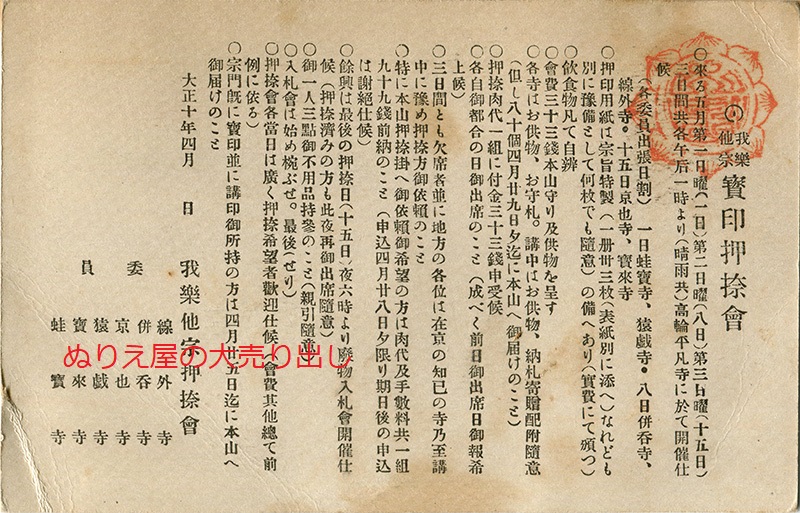 我樂他宗 寶印押捺會
○來る五月第一日曜(一日)第二日曜(八日)第三日曜(十五日)
三日間共各午后一時より(晴雨共)高輪平凡寺に於て開催仕
候
(各委員出張日割) 一日蛙寶寺、猿戯寺。八日併呑寺、
線外寺。十五日京也寺、寶來寺
○押印用紙は宗旨特製(一册卅三枚(表紙別に添へ)なれども
別に豫備として何枚でも隨意)の備へあり(實費にて頒つ)
○飲食物凡て自辨
○會費三十三錢本山守り及供物を呈す
○各寺はお供物、お守札。講中はお供物、納札寄贈配附隨意
(但し八十個四月廿九日夕迄に本山へ御届けのこと)
○押捺肉代一組に付金三十三錢申受候
○各自御都合の日御出席のこと(成べく前日御出席日御報希
上候)
○三日間とも欠席者並に地方の各位は在京の知己の寺乃至講
中に豫め押捺方御依頼のこと
○特に本山押捺掛へ御依頼御希望の方は肉代及手數料共一組
九十九錢前納のこと(申込四月廿八日夕限り期日後の申込
は謝絶仕候)
○餘興は最後の押捺日(十五日)夜六時より廢物入札會開催仕
候(押捺濟みの方も此夜再御出席隨意)
○御一人三點御不用品持參のこと(親引隨意)
○入札會は始め椀ぶせ。最後(せり)
○押捺會各當日は廣く押捺希望者歡迎仕候(會費其他總て前
例に依る)
○宗門既に寶印並に講印御所持の方は四月廿五日迄に本山へ
御届けのこと
大正十年四月 日 我樂他宗押捺會
委員
線外寺
併呑寺
京也寺
猿戯寺
寶來寺
蛙寶寺
ぬりえ屋の大売り出し